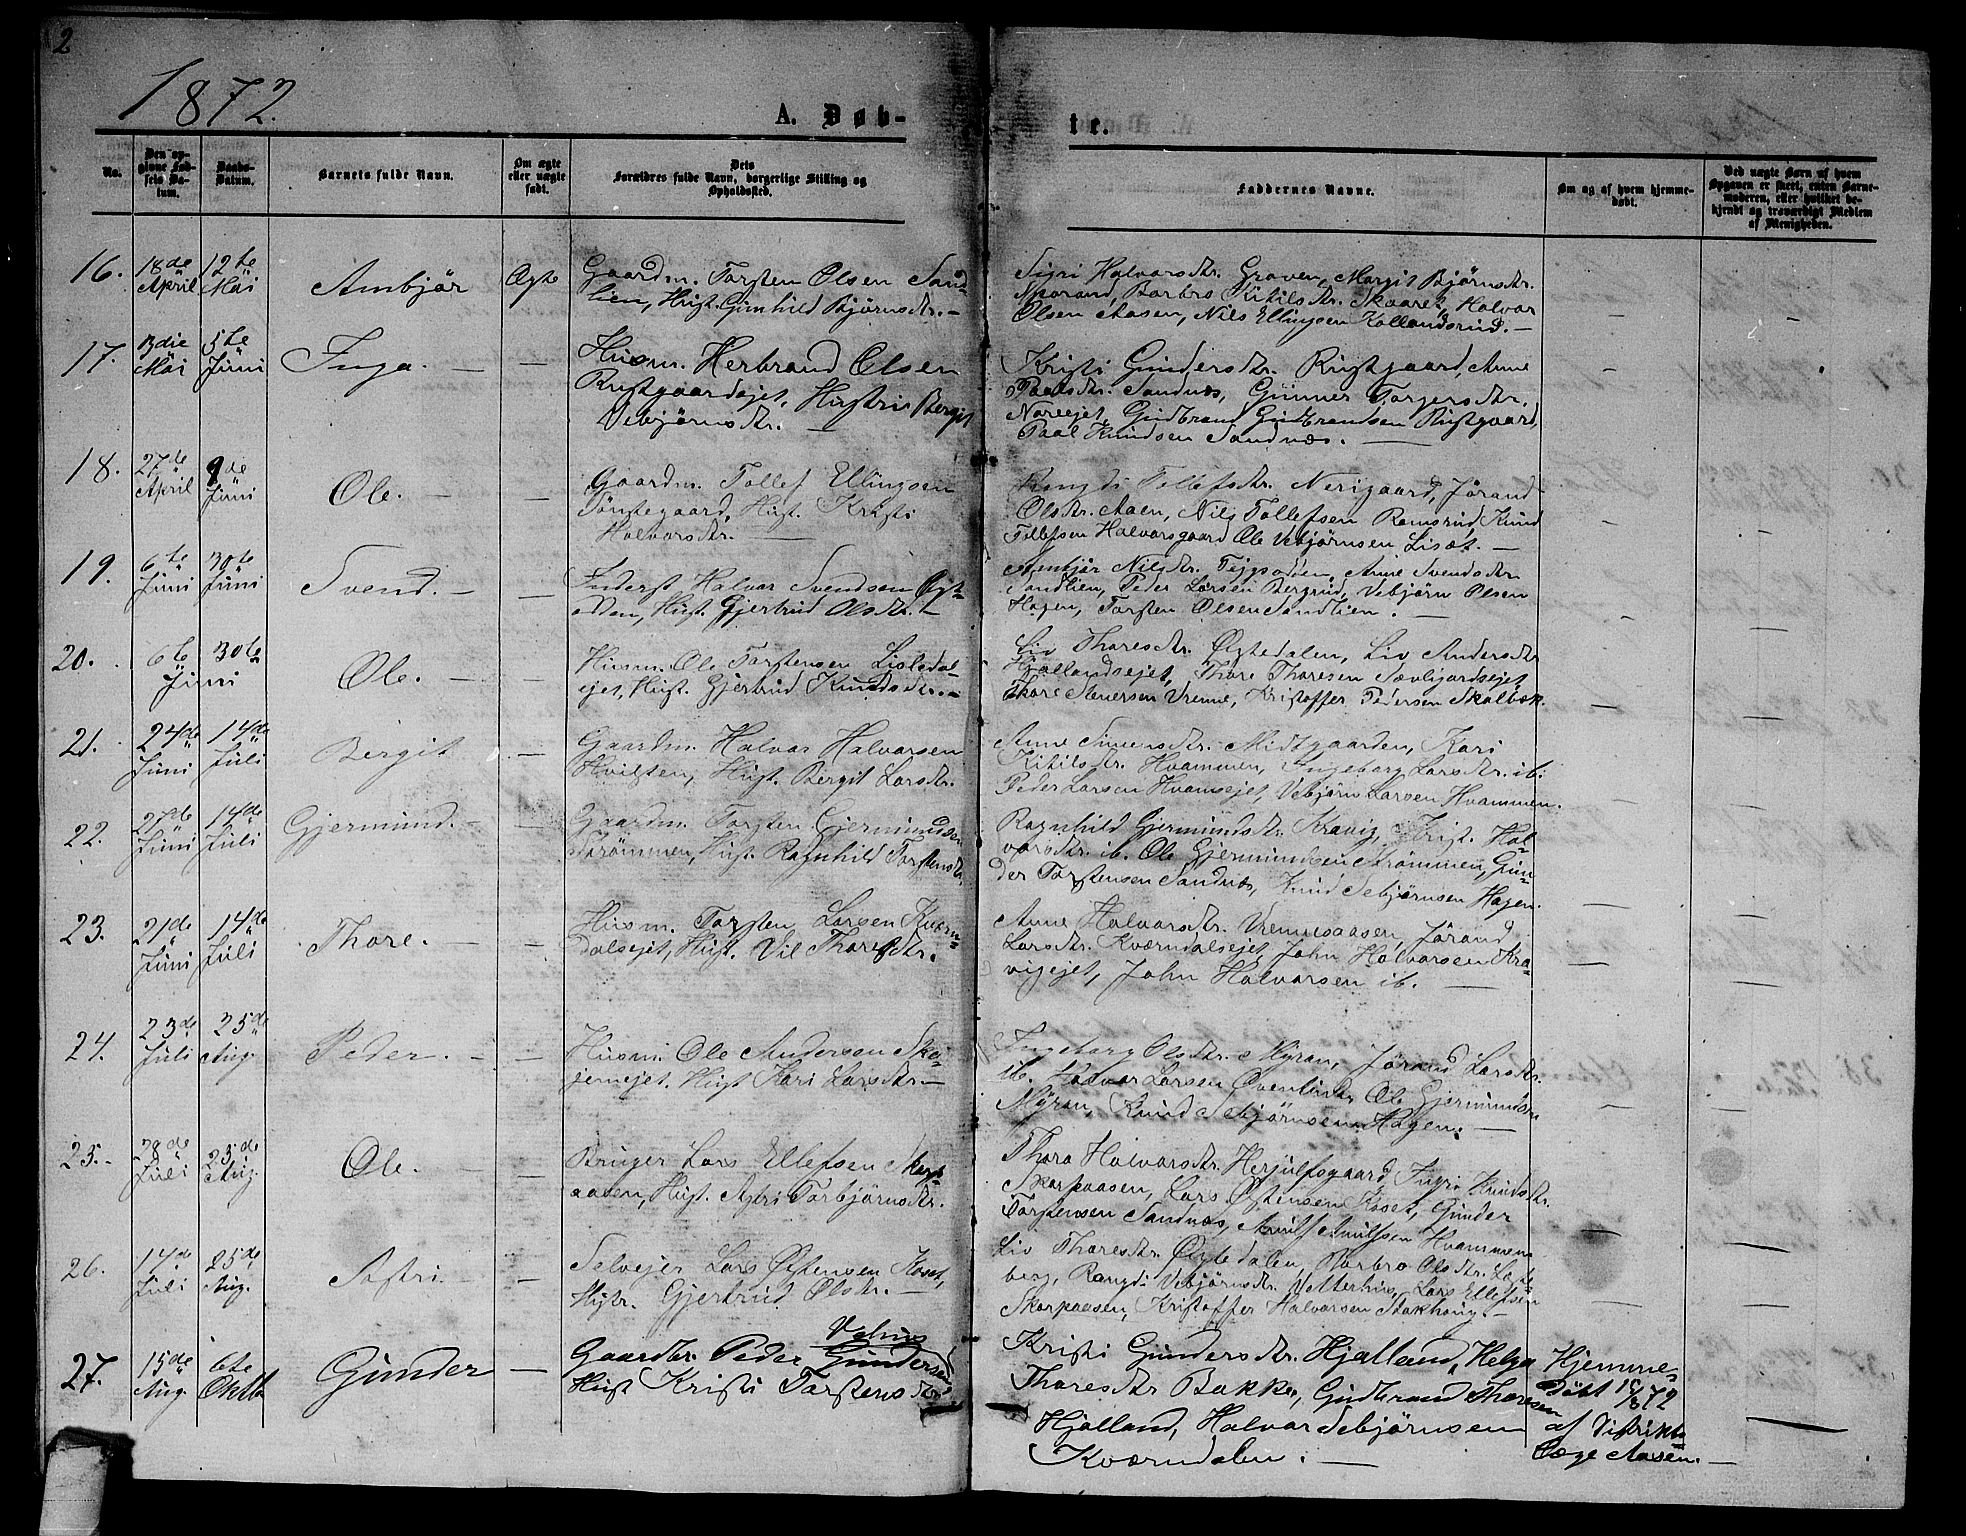 2
1872.
A. Døb-
te.
No.
Den op-
givne Fød-
sels Da-
tum.
Daabs-
Datum.
Barnets fulde Navn.
Om ægte
eller uægte
født.
Dets
Forældres fulde Navn, borgerlige Stilling og
Opholdssted.
Faddernes Navne.
Om og af hvem hjemme-
døbt.
Ved uægte Børn af hvem
Opgaven er skeet, enten Barne-
moderen, eller hvilket be-
kjendt og troværdigt Medlem
af Menigheden.
16. 18de April 12te Mai Ambjør Ægte
Gaardm. Torsten Olsen Sand-
lien, Hust. Gunhild Bjørnsdtr. —
Sigri Halvorsdtr. Graven, Margit Bjørnsdtr.
Sporand, Barbro Kitilsdtr. Skaaret, Halvor
Olsen Aasen, Nils Ellingsen Kollandsrud. —
17. 3die Mai 5te Juni Inga. — —
Husm. Herbrand Olsen
Rustgaardsejet, Hustru Bergit
Vebjørnsdtr. —
Kristi Gundersdtr. Rustgaard, Anne
Paalsdtr. Sandnæs, Gunner Torgersdtr.
Noreejet, Gudbrand Gudbrandsen Rustgaard,
Paal Knudsen Sandnæs. —
18. 27de April 9de Juni Ole. — —
Gaardm. Tollef Ellingsen
Tøndegaard, Hust. Kristi
Halvorsdtr. —
Rangdi Tollefsdtr. Nerigaard, Jørand
Olsdtr. Aaen, Nils Tollefsen Ramsrud, Knud
Tollefsen Halvorsgaard Ole Vebjørnsen Liset. —
19. 6te Juni 30te Juni Svend. — —
Inderst Halvor Svendsen
Hust. Gjertrud Olsdtr. —
Ambjør Nilsdtr. Anne Svendsdtr.
Sandlien, Peder Larsen Bergrud, Vebjørn Olsen
Hagen, Torsten Olsen Sandlien.
20. 6te Juni 30te Ole. — —
Husm. Ole Torstensen Lisledal-
ejet, Hust. Gjertrud Knudsdtr. —
Liv Thoresdtr. Øygedalen, Liv Andersdtr.
Hjallandsejet, Thore Thoresen Sevligardsejet,
Thore Stenersen Vrenne, Kristoffer Pedersen Skalbæk.
21. 24de Juni 14de Juli Bergit — —
Gaardm. Halvor Halvorsen
Hvilsten, Hust. Bergit Larsdtr.
Anne Simensdtr. Midtgaarden, Kari
Kitilsdtr. Hvammen, Ingeborg Larsdtr. ib.
Peder Larsen Hvamsejet, Vebjørn Larsen Hvammen.
22. 27de Juni 14de Juli Gjermund. — —
Gaardm. Torsten Gjermundsen
Strømmen, Hust. Ragnhild Torstensdtr.
Ragnhild Gjermundsdtr. Kravig, Krist. Hal-
vorsdtr. ib. Ole Gjermundsen Strømmen, Gun-
der Torstensen Sandnæs, Knud Sebjørnsen Hagen.
23. 21de Juni 14de Juli Thore. — —
Husm. Torsten Larsen Kværn-
dalsejet, Hust. Vil Thoresdtr.
Anne Halvorsdtr. Vrenneaasen, Jørand
Larsdtr. Kværndalsejet, John Halvorsen Kra-
vigejet, John Halvorsen ib. —
24. 23de Juli 25de Aug. Peder. — —
Husm. Ole Andersen Skj-
jernejet, Hust. Kari Larsdtr. —
Ingeborg Olsdtr. Myran, Jørand Larsdtr.
ib. Halvor Larsen Ole Gjermundsen
Myran, Knud Sebjørnsen Hagen. —
25. 28de Juli 25de Aug. Ole. —
Bruger Lars Ellefsen Skarp-
aasen, Hust. Astri Torbjørnsdtr.
Thora Halvorsdtr. Herjulfsgaard, Ingri Knudsdtr.
Skarpaasen, Lars Østensen Koset, Gunder
Torstensen Sandnæs, Knut Knutsen Hvammen.
26. 14de Juli 25de Aug. Astri. — —
Selvejer Lars Østensen Koset,
Hustr. Gjertrud Olsdtr. —
Liv Thoresdtr. Øygedalen, Barbro Olsdtr. Lægte-
berg, Rangdi Vebjørnsdtr. Vetterhus, Lars Ellefsen
Skarpaasen, Kristoffer Halvorsen Stokhaug. —
27. 15de Aug. 6te Oktb Gunder —
Gaardbr. Peder Gundersen
Hust Kristi Torstensdtr.
Kristi Gundersdtr. Hjalland, Helga
Thoresdtr Bakke, Gudbrand Thoresen
Hjalland, Halvor Sebjørnsen
Kværndalen. —
Hjemme-
døbt 15/8 72
af Distrikts
Læge Aasen. —